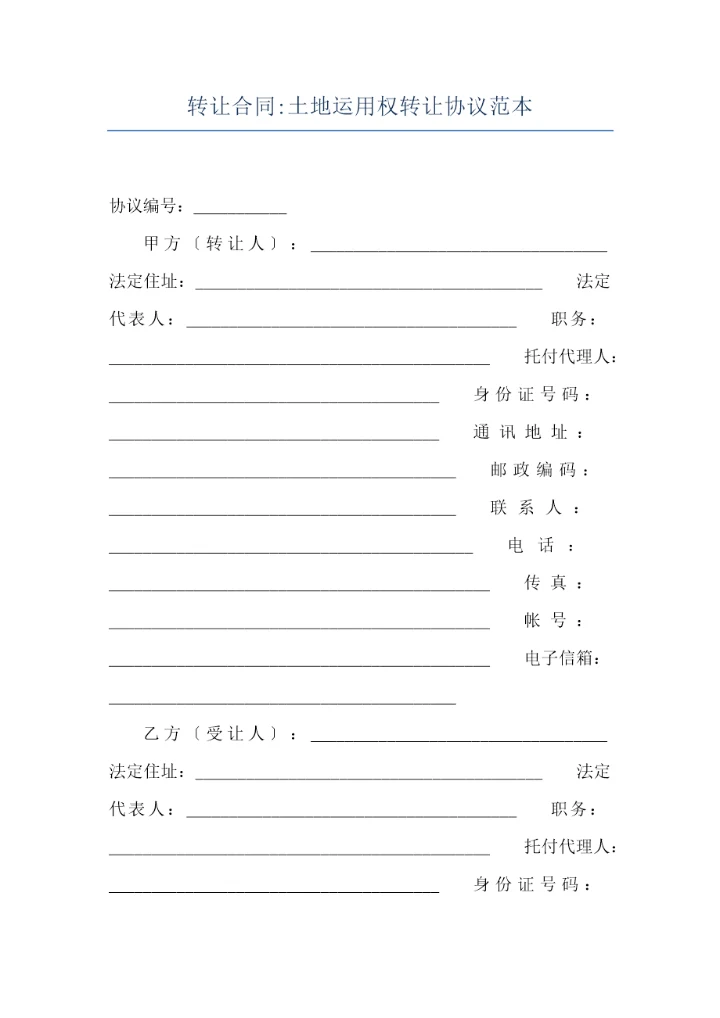 转让合同:土地运用权转让协议范本
协议编号：___________
甲方〔转让人〕：___________________________________
法定住址：_________________________________________ 法定
代表人：_______________________________________ 职务：
_____________________________________________ 托付代理人：
_______________________________________ 身份证号码：
_______________________________________ 通讯地址：
_________________________________________ 邮政编码：
_________________________________________ 联系人：
___________________________________________ 电话：
_____________________________________________ 传真：
_____________________________________________ 帐号：
_____________________________________________ 电子信箱：
_________________________________________
乙方〔受让人〕：___________________________________
法定住址：_________________________________________ 法定
代表人：_______________________________________ 职务：
_____________________________________________ 托付代理人：
_______________________________________ 身份证号码：